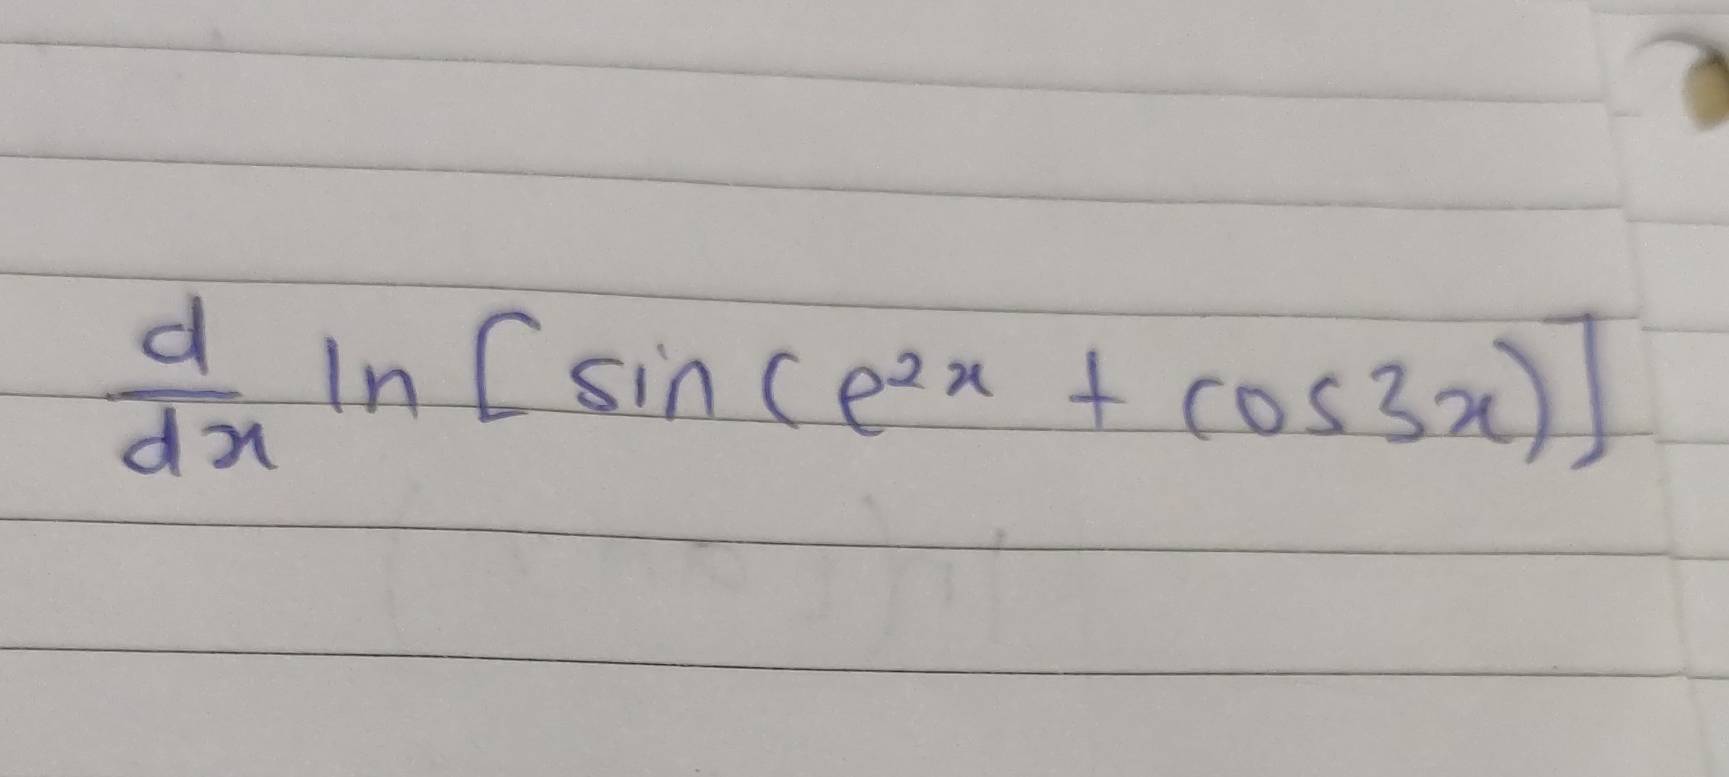 d/dx ln [ sin ( e^{2x} + cos3x ) ]